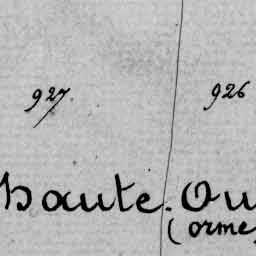 927 926
haute. Ou
(orme